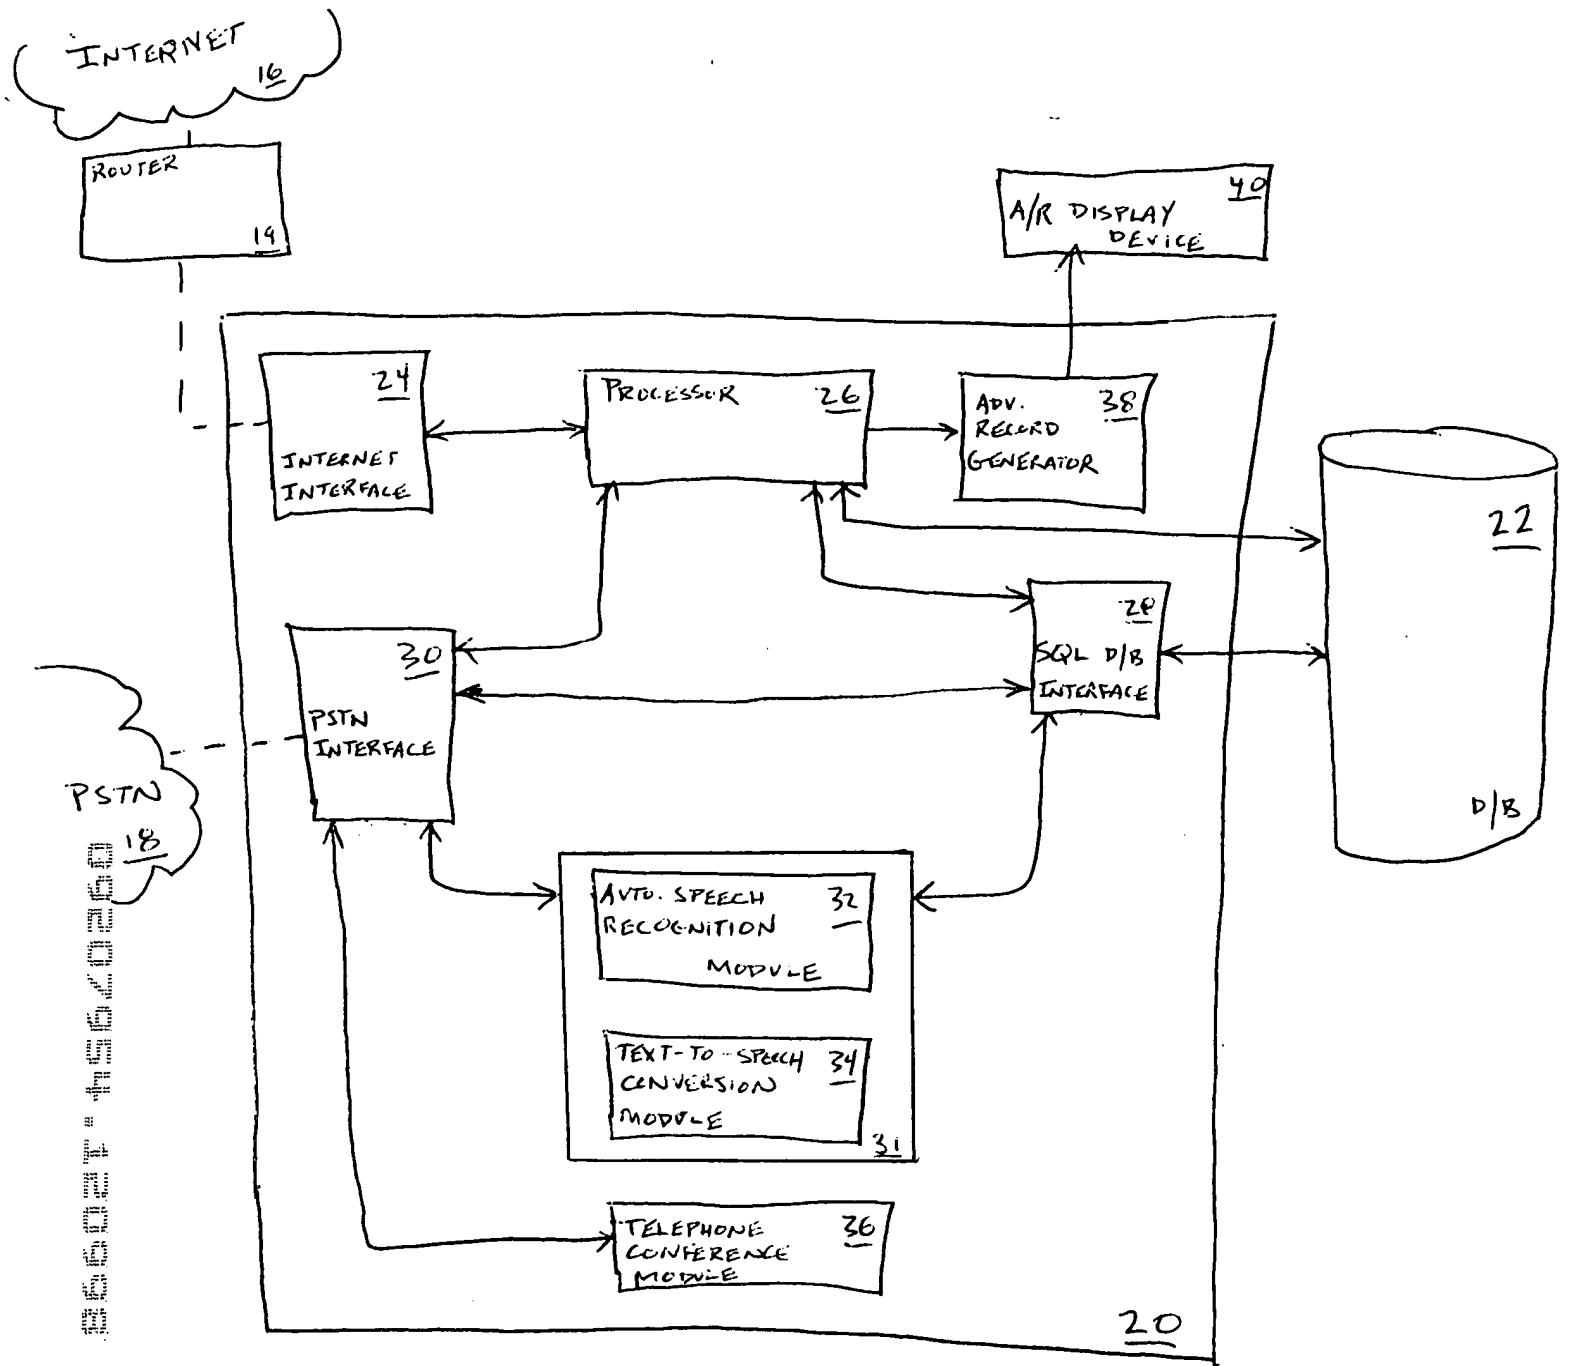 INTERNET
16
ROUTER
19
40
A/R DISPLAY
DEVICE
24
INTERNET
INTERFACE
PROCESSOR
26
ADV.
38
RECORD
GENERATOR
22
D/B
28
SQL D/B
INTERFACE
30
PSTN
INTERFACE
PSTN
18
AUTO. SPEECH
32
RECOGNITION
MODULE
TEXT-TO-SPEECH
34
CONVERSION
MODULE
31
TELEPHONE
36
CONFERENCE
MODULE
20
09207954.120998